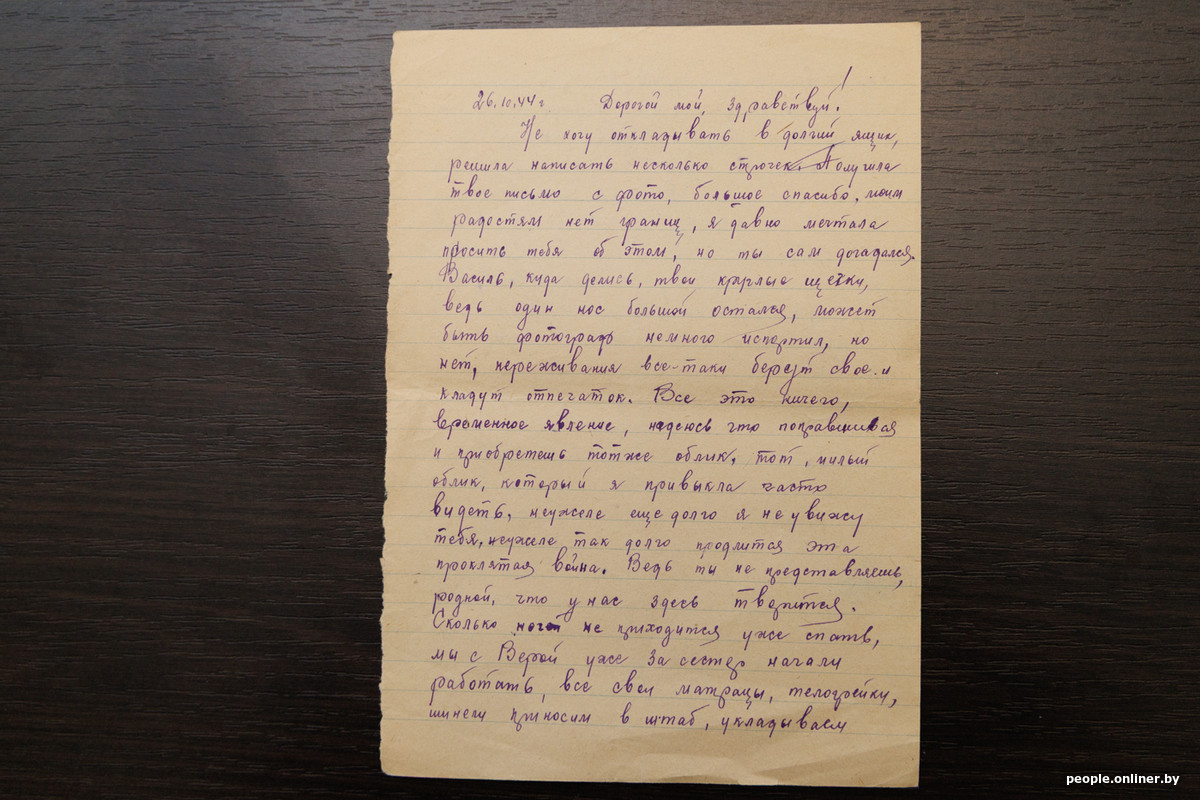 26.10.44 г. Дорогой мой, здравствуй!
Не хочу откладывать в долгий ящик,
решила написать несколько строчек. Получила
твое письмо с фото, большое спасибо, моим
радостям нет границ, я давно мечтала
просить тебя об этом, но ты сам догадался.
Василь, куда делись, твои круглые щечки,
ведь один нос большой остался, может
быть фотограф немного испортил, но
нет, переживания все-таки берут свое и
кладут отпечаток. Все это ничего,
временное явление, надеюсь что поправишься
и приобретешь тотже облик, тот, милый
облик, который я привыкла часто
видеть, неужеле еще долго я не увижу
тебя, неужеле так долго продлится эта
проклятая война. Ведь ты не представляешь,
родной, что у нас здесь творится.
Сколько ночей не приходится уже спать,
мы с Верой уже за сестер начали
работать, все свои матрацы, телогрейки,
шинели приносим в штаб, укладываем
people.onliner.by